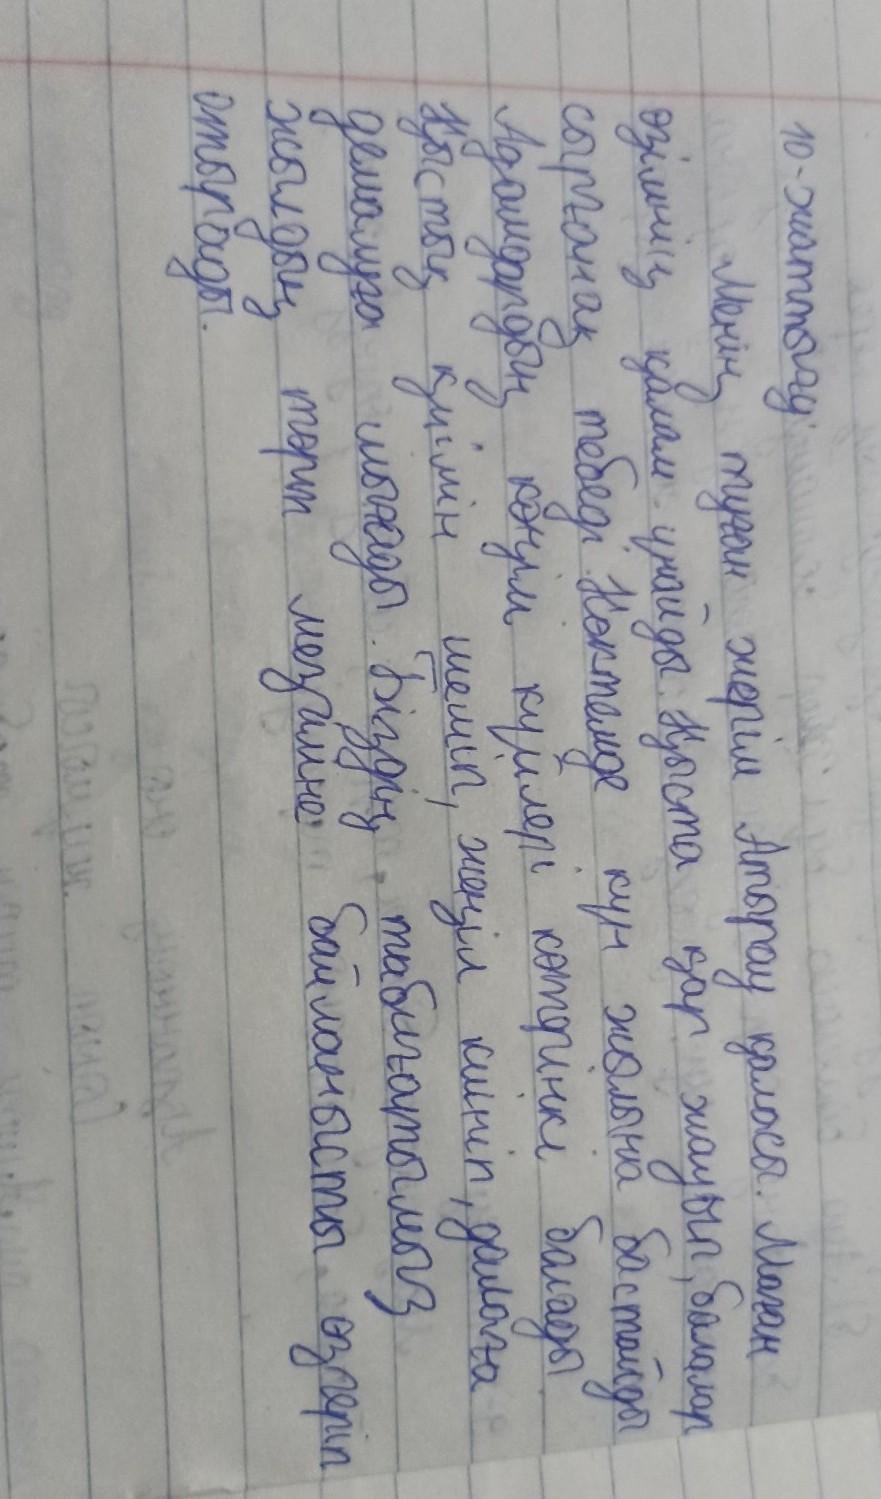 10-жаттығу.
Менің туған жерім Атырау қаласы. Маған
өзімнің қалам ұнайды. Қыста қар жауып, балалар
сырғанақ тебеді. Көктемде күн жылына бастайды
Адамдардың көңіл күйлері көтріңкі балады
Қыстың күімін шешіп, жеңіл киініп, далаға
демалуға шығады. Біздің табиғатымыз
жылдың төрт мезгіліне байланысты өзгеріп
отырады.